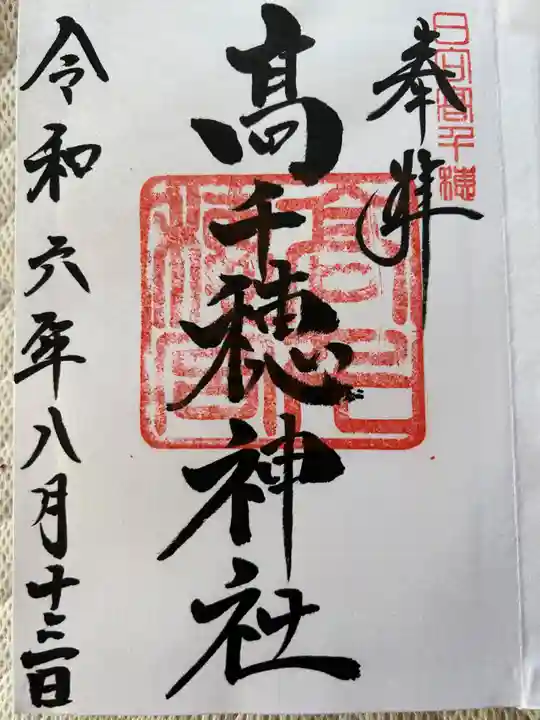 日向高千穂
奉拝
髙千穂神社
令和六年八月十三日